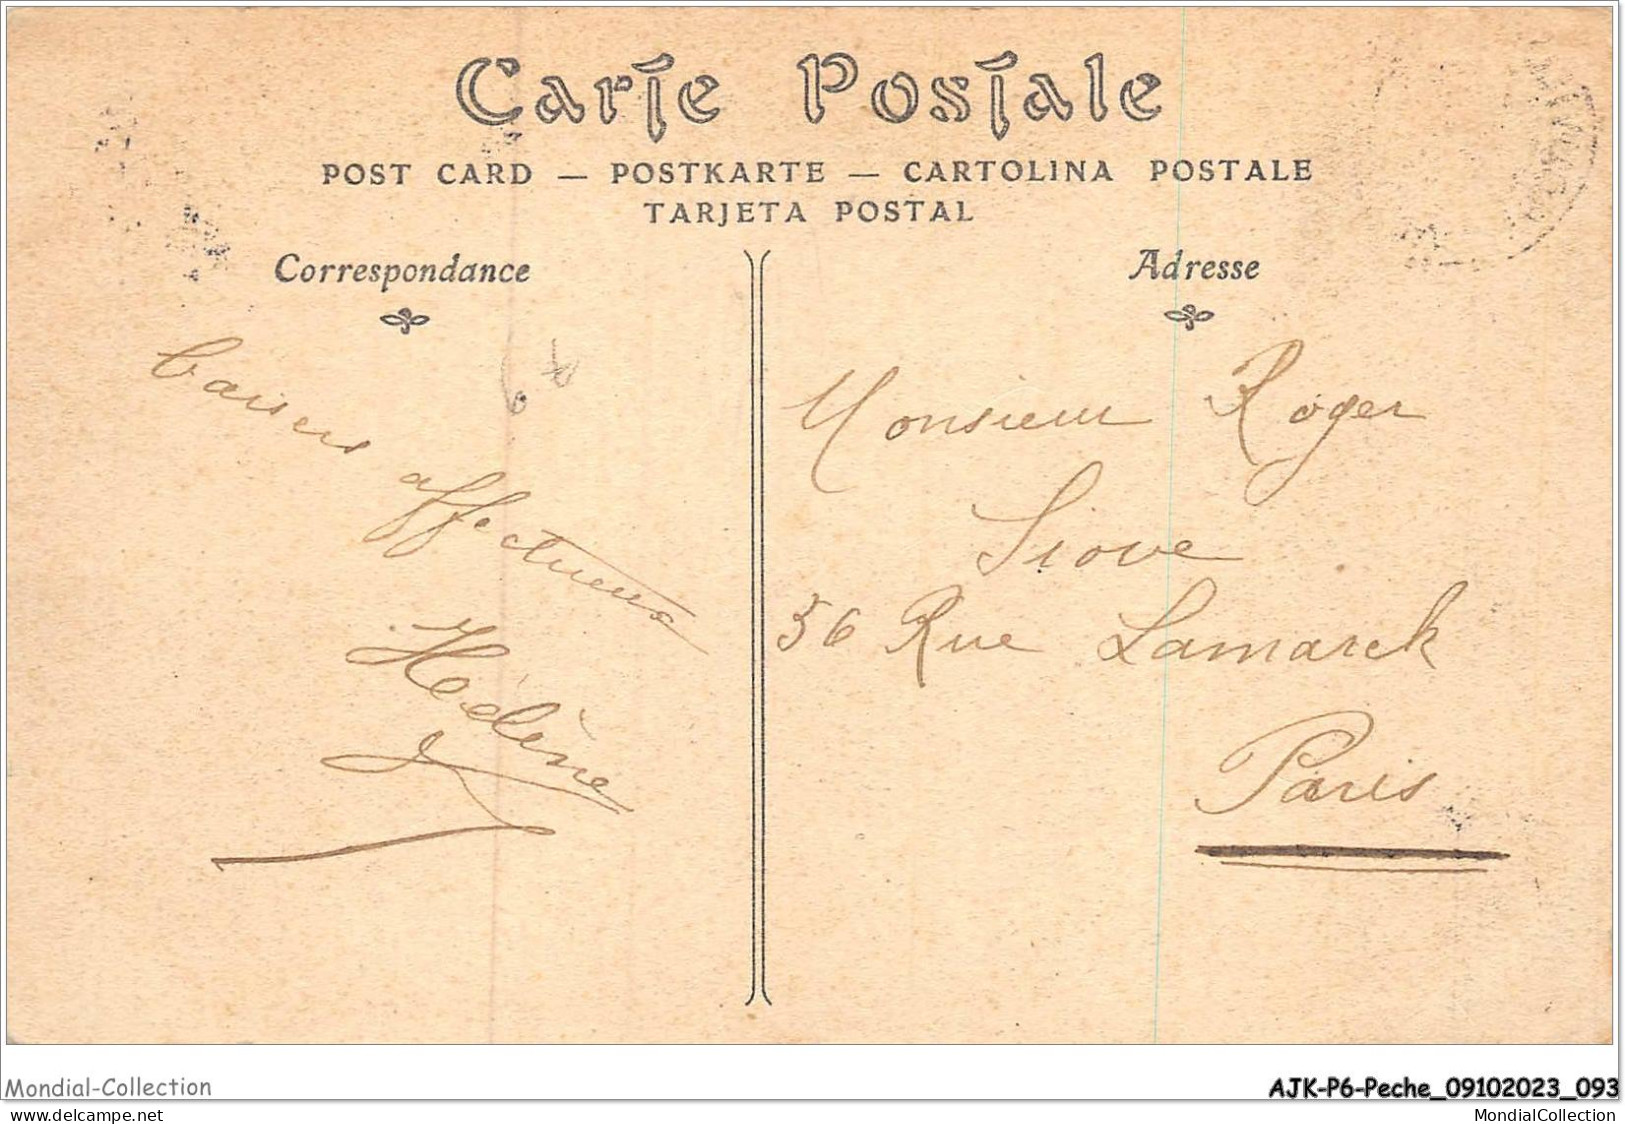 Carte Postale
POST CARD — POSTKARTE — CARTOLINA POSTALE
TARJETA POSTAL
Correspondance
Baisers affectueux
Hélène
Adresse
Monsieur Roger
Siove
56 Rue Lamarck
Paris
Mondial-Collection
AJK-P6-Peche_09102023_093
delcampe.net
MondialCollection